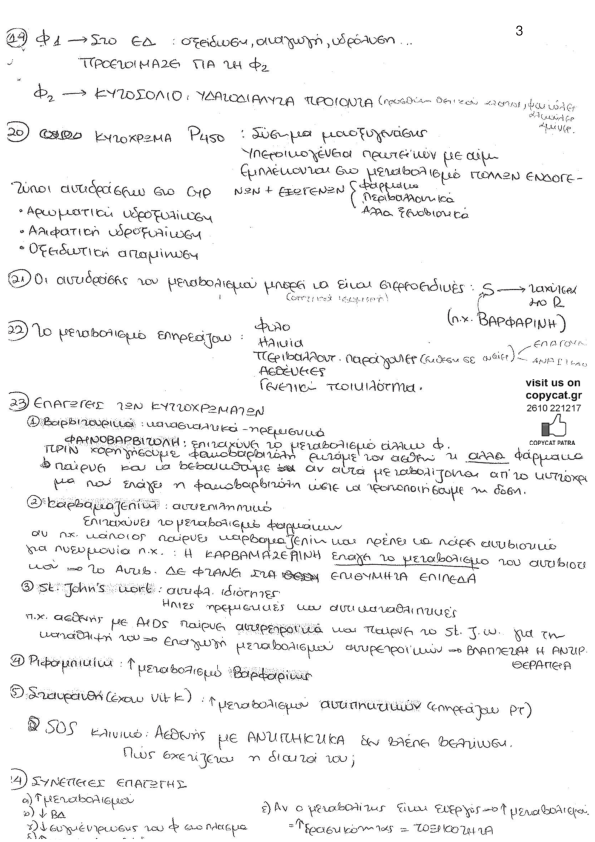 3
19) Φ1 → Στο ΕΔ : οξείδωση, αναγωγή, υδρόλυση ...
ΠΡΟΕΤΟΙΜΑΖΕΙ ΓΙΑ ΤΗ Φ2
Φ2 → ΚΥΤΟΣΟΛΙΟ: ΥΔΑΤΟΔΙΑΛΥΤΑ ΠΡΟΙΟΝΤΑ
20) ΚΥΤΟΧΡΩΜΑ P450 : Σύστημα μιοξυγενάσης
Υπεροικογένεια πρωτεϊνών με αίμη
Εμπλέκονται στο μεταβολισμό ΠΟΛΛΩΝ ΕΝΔΟΓΕ-
Τύποι αντιδράσεων στο CYP ΝΩΝ + ΕΞΩΓΕΝΩΝ { φάρμακα
Περιβαλλοντικά
Άλλα ξενοβιοτικά
• Αρωματική υδροξυλίωση
• Αλιφατική υδροξυλίωση
• Οξειδωτική απαμίνωση
21) Οι αντιδράσεις του μεταβολισμού μπορεί να είναι στερεοειδικές : S → ταχύτερα
από R
(π.χ. ΒΑΡΦΑΡΙΝΗ)
22) Το μεταβολισμό επηρεάζουν : Φύλο
Ηλικία
Περιβάλλοντ. παράγοντες
Ασθένειες
Γενετική ποικιλότητα.
visit us on
copycat.gr
2610 221217
COPYCAT PATRA
23) ΕΠΑΓΩΓΕΙΣ ΤΩΝ ΚΥΤΟΧΡΩΜΑΤΩΝ
① Βαρβιτουρικά : κατασταλτικό - ηρεμιστικό
ΦΑΙΝΟΒΑΡΒΙΤΟΛΗ : επιταχύνει το μεταβολισμό άλλων φ.
ΠΡΙΝ χορηγήσουμε φαινοβαρβιτόλη ρωτάμε τον ασθενή τι άλλα φάρμακα
παίρνει και να βεβαιωθούμε αν αυτά μεταβολίζονται από το κυτόχρω
μα που επάγει η φαινοβαρβιτόλη ώστε να τροποποιήσουμε τη δόση.
② Καρβαμαζεπίνη : αντιεπιληπτικό
Επιταχύνει το μεταβολισμό φαρμάκων
αν π.χ. κάποιος παίρνει καρβαμαζεπίνη και πρέπει να πάρει αντιβιοτικό
για πνευμονία π.χ. : Η ΚΑΡΒΑΜΑΖΕΠΙΝΗ επάγει το μεταβολισμό του αντιβιοτι
κού → το Αντιβ. ΔΕ ΦΤΑΝΕΙ ΣΤΑ ΕΠΙΘΥΜΗΤΑ ΕΠΙΠΕΔΑ
③ St. John's wort : αντιφλ. ιδιότητες
Ήπιες ηρεμιστικές και αντικαταθλιπτικές
π.χ. ασθενής με AIDS παίρνει αντιρετροϊκά και παίρνει το St. J. w. για την
κατάθλιψή του → Επαγωγή μεταβολισμού αντιρετροϊκών → ΒΛΑΠΤΕΤΑΙ Η ΑΝΤΙΡ.
ΘΕΡΑΠΕΙΑ
④ Ριφαμπικίνη : ↑μεταβολισμό Βαρφαρίνης
⑤ Σταυρανθή (έχουν vit K) : ↑μεταβολισμού αντιπηκτικών (επηρεάζουν PT)
SOS Κλινικό : Ασθενής ΜΕ ΑΝΤΙΠΗΚΤΙΚΑ δεν βλέπει βελτίωση.
Πώς σχετίζεται η δίαιτά του;
24) ΣΥΝΕΠΕΙΕΣ ΕΠΑΓΩΓΗΣ
α) ↑μεταβολισμού
β) ↓ΒΔ
γ) ↓συγκέντρωσης του φ στο πλάσμα
ε) Αν ο μεταβολίτης είναι ενεργός → ↑μεταβολισμού
= ↑δραστικότητας = ΤΟΞΙΚΟΤΗΤΑ